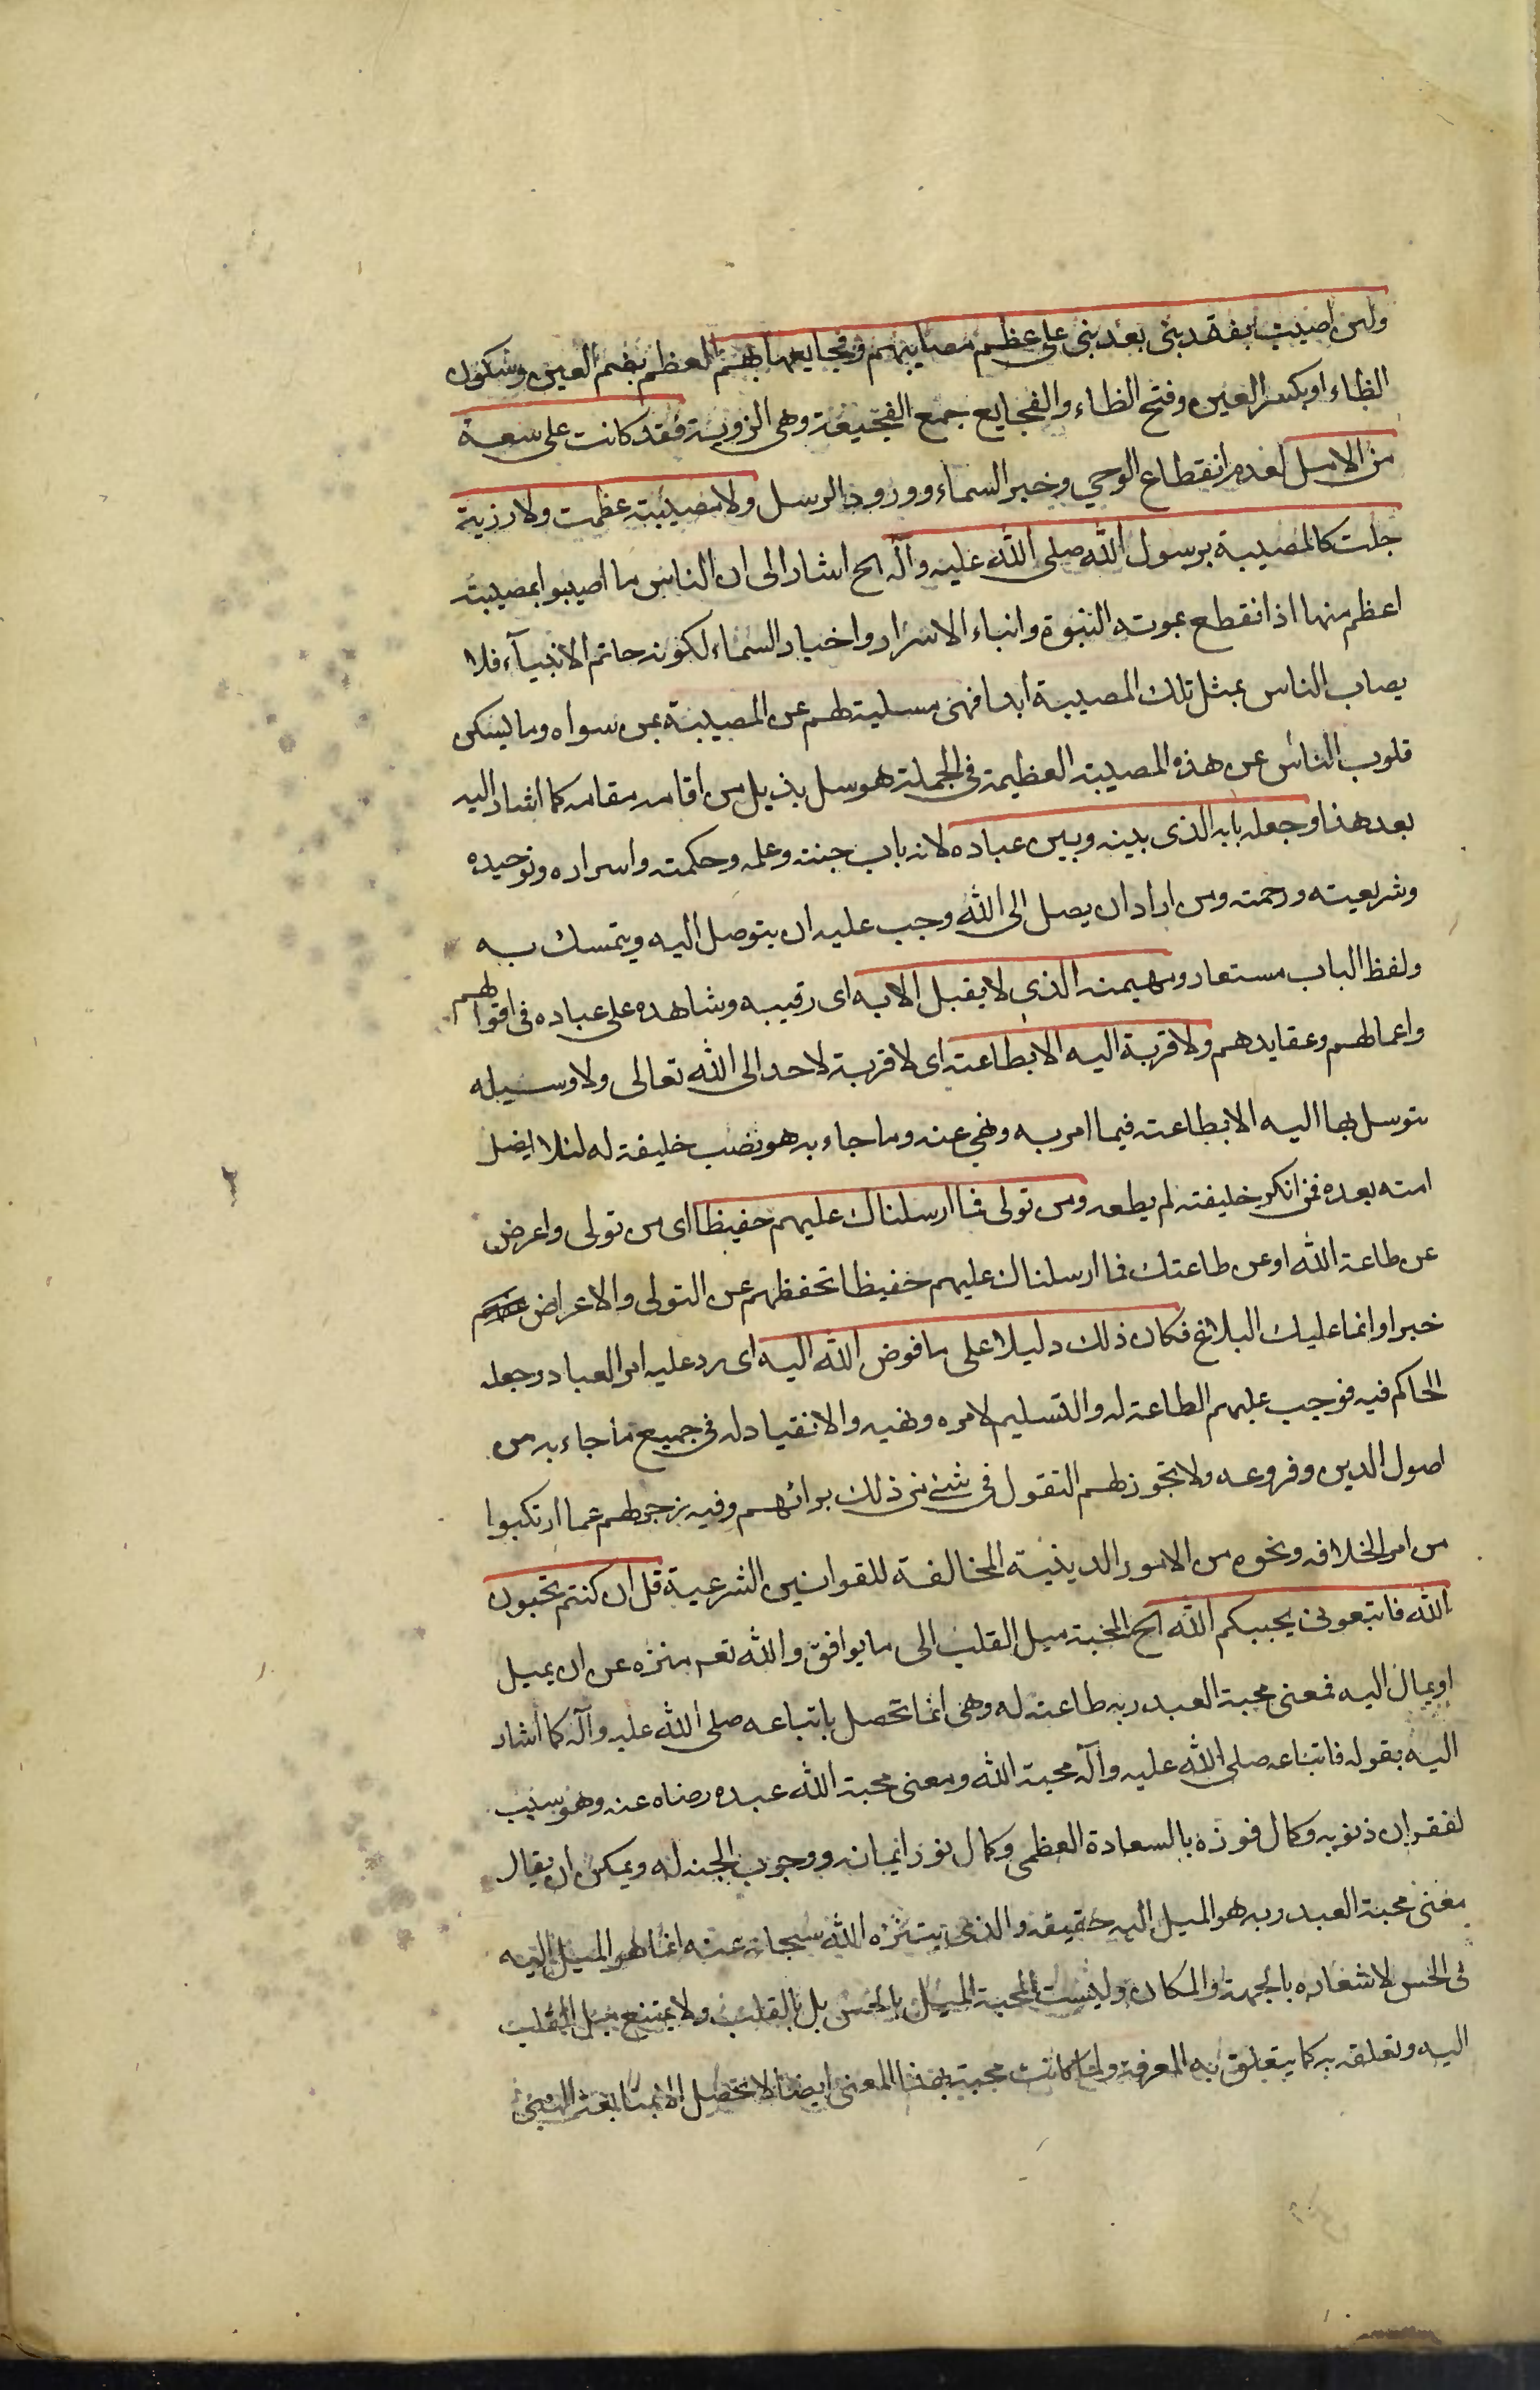 ولئن اصيبت بفقد بنى بعد بنى على عظم مصايبهم وفجايعها بهم العظم بضم العين وسكون
الظاء او بكسر العين وفتح الظاء والفجايع جمع الفجيعة وهى الرزية فقد كانت على سعة
من الامل لعدم انقطاع الوحي وخبر السماء وورود الرسل ولا مصيبة عظمت ولا رزية
جلت كالمصيبة برسول الله صلى الله عليه وآله الح اشار الى ان الناس ما اصيبوا بمصيبة
اعظم منها اذ انقطع بموته النبوة وانباء الاسرار واخبار السماء لكونه خاتم الانبياء فلا
يصاب الناس بمثل تلك المصيبة ابدا فهى مسلية لهم عن المصيبة بمن سواه وما يسكن
قلوب الناس عن هذه المصيبة العظيمة فى الجملة هو سل بذيل من اقامه مقامه كما اشار اليه
بعد هذا وجعله بابه الذى بينه وبين عباده لانه باب جنته وعلمه وحكمته واسراره وتوحيده
وشريعته ورحمته ومن اراد ان يصل الى الله وجب عليه ان يتوصل اليه ويتمسك به
ولفظ الباب مستعار ومهيمنه الذى لا يقبل الا به اى رقيبه وشاهده على عباده فى اقوالهم
واعمالهم وعقايدهم ولا قربة اليه الا بطاعته اى لا قربة لاحد الى الله تعالى ولا وسيله
يتوسل بها اليه الا بطاعته فيما امر به ونهى عنه وما جاء به هو نصب خليفة له لئلا يضل
امته بعده فمن انكر خليفته لم يطعه ومن تولى فما ارسلناك عليهم حفيظا اى من تولى واعرض
عن طاعة الله او عن طاعتك فما ارسلناك عليهم حفيظا تحفظهم عن التولى والاعراض
خبرا وانما عليك البلاغ فكان ذلك دليلا على ما فوض الله اليه اى رد عليه امر العباد وجعله
الحاكم فيه فوجب عليهم الطاعة له والتسليم لامره ونهيه والانقياد له فى جميع ما جاء به من
اصول الدين وفروعه ولا يجوز لهم التقول فى شئ من ذلك برائهم وفيه زجر لهم عما ارتكبوا
من امر الخلافه ونحوه من الامور الدينية المخالفة للقوانين الشرعية قل ان كنتم تحبون
الله فاتبعونى يحببكم الله الح المحبة ميل القلب الى ما يوافق والله تعم منزه عن ان يميل
او يمال اليه فمعنى محبة العبد ربه طاعته له وهى انما تحصل باتباعه صلى الله عليه وآله كما اشار
اليه بقوله فاتباعه صلى الله عليه وآله محبة الله ومعنى محبة الله عبده رضاه عنه وهو سبب
لغفران ذنوبه وكمال فوزه بالسعادة العظمى وكمال نور ايمانه ووجوب الجنة له ويمكن ان يقال
معنى محبة العبد ربه هو الميل اليه حقيقة والذى يتنزه الله سبحانه عنه انما هو الميل اليه
فى الحس لاشعاره بالجهة والمكان وليست المحبة الميل بالحس بل بالقلب ولا يمتنع ميل القلب
اليه وتعلقه به كما يتعلق به المعرفة ولما كانت محبته بهذا المعنى ايضا لا تحصل الا بمتابعة النبى
٢